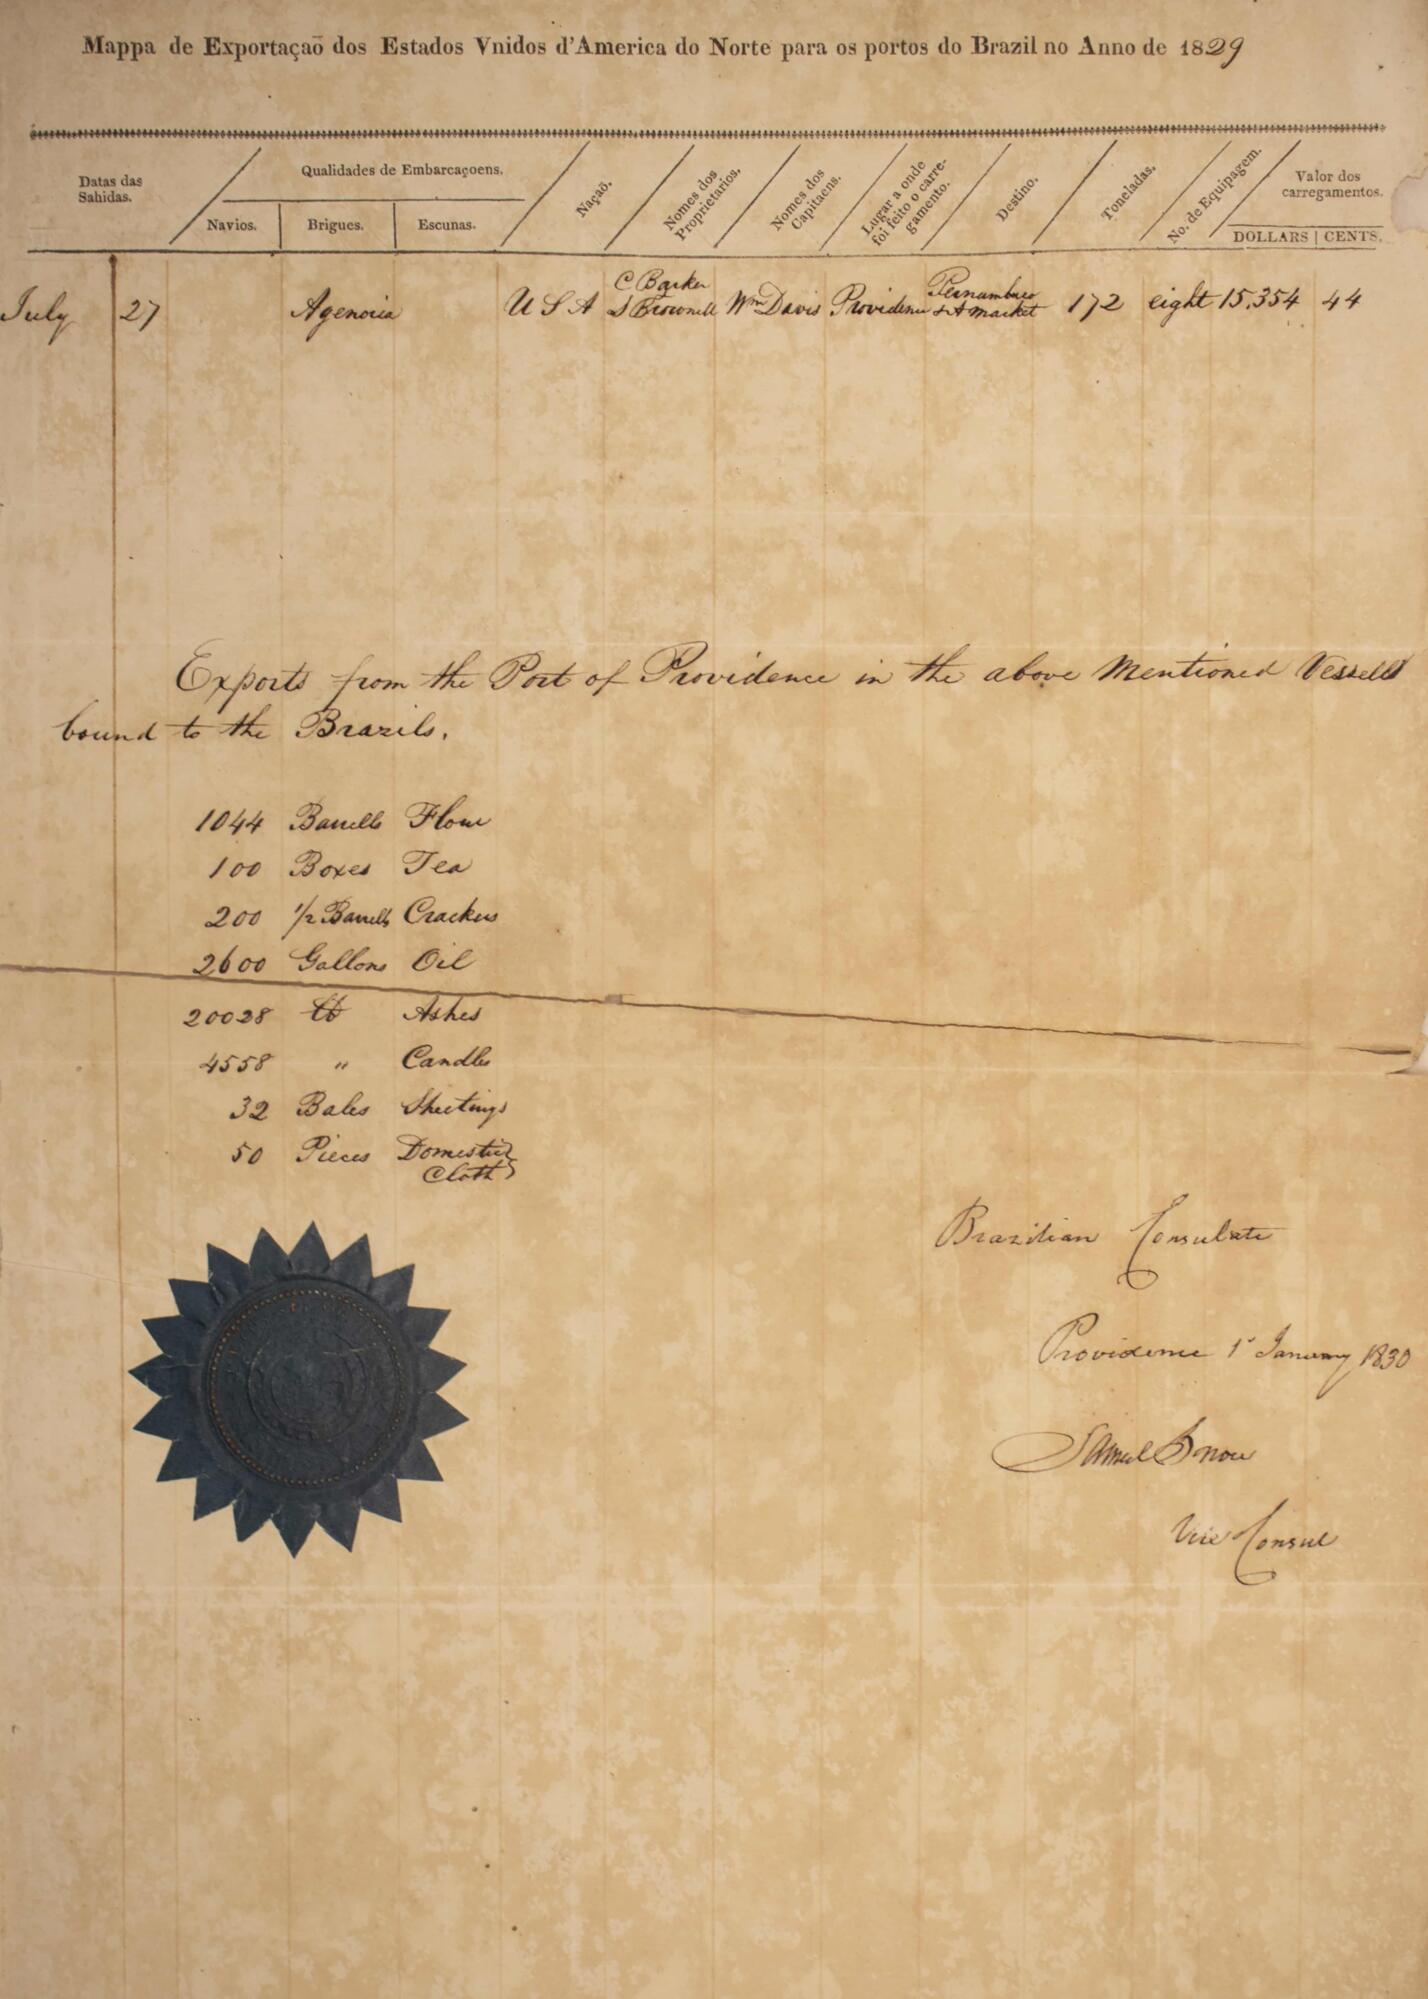 Mappa de Exportaçaõ dos Estados Vnidos d'America do Norte para os portos do Brazil no Anno de 1829
Datas das
Sahidas.
Qualidades de Embarcaçoens.
Navios.
Brigues.
Escunas.
Naçaõ.
Nomes dos
Proprietarios.
Nomes dos
Capitaens.
Lugar a onde
foi feito o carre-
gamento.
Destino.
Toneladas.
No. de Equipagem.
Valor dos
carregamentos.
DOLLARS | CENTS.
July 27 Agenoria U S A C Barker
S Brownell Wm Davis Providence Pernambuco
& A market 172 eight 15.354 44
Exports from the Port of Providence in the above Mentioned Vessells
bound to the Brazils.
1044 Barrells Flour
100 Boxes Tea
200 1/2 Barrells Crackers
2600 Gallons Oil
20028 lb Ashes
4558 " Candles
32 Bales Sheetings
50 Pieces Domestic
Cloth
Brazilian Consulate
Providence 1st January 1830
Samuel Snow
Vice Consul